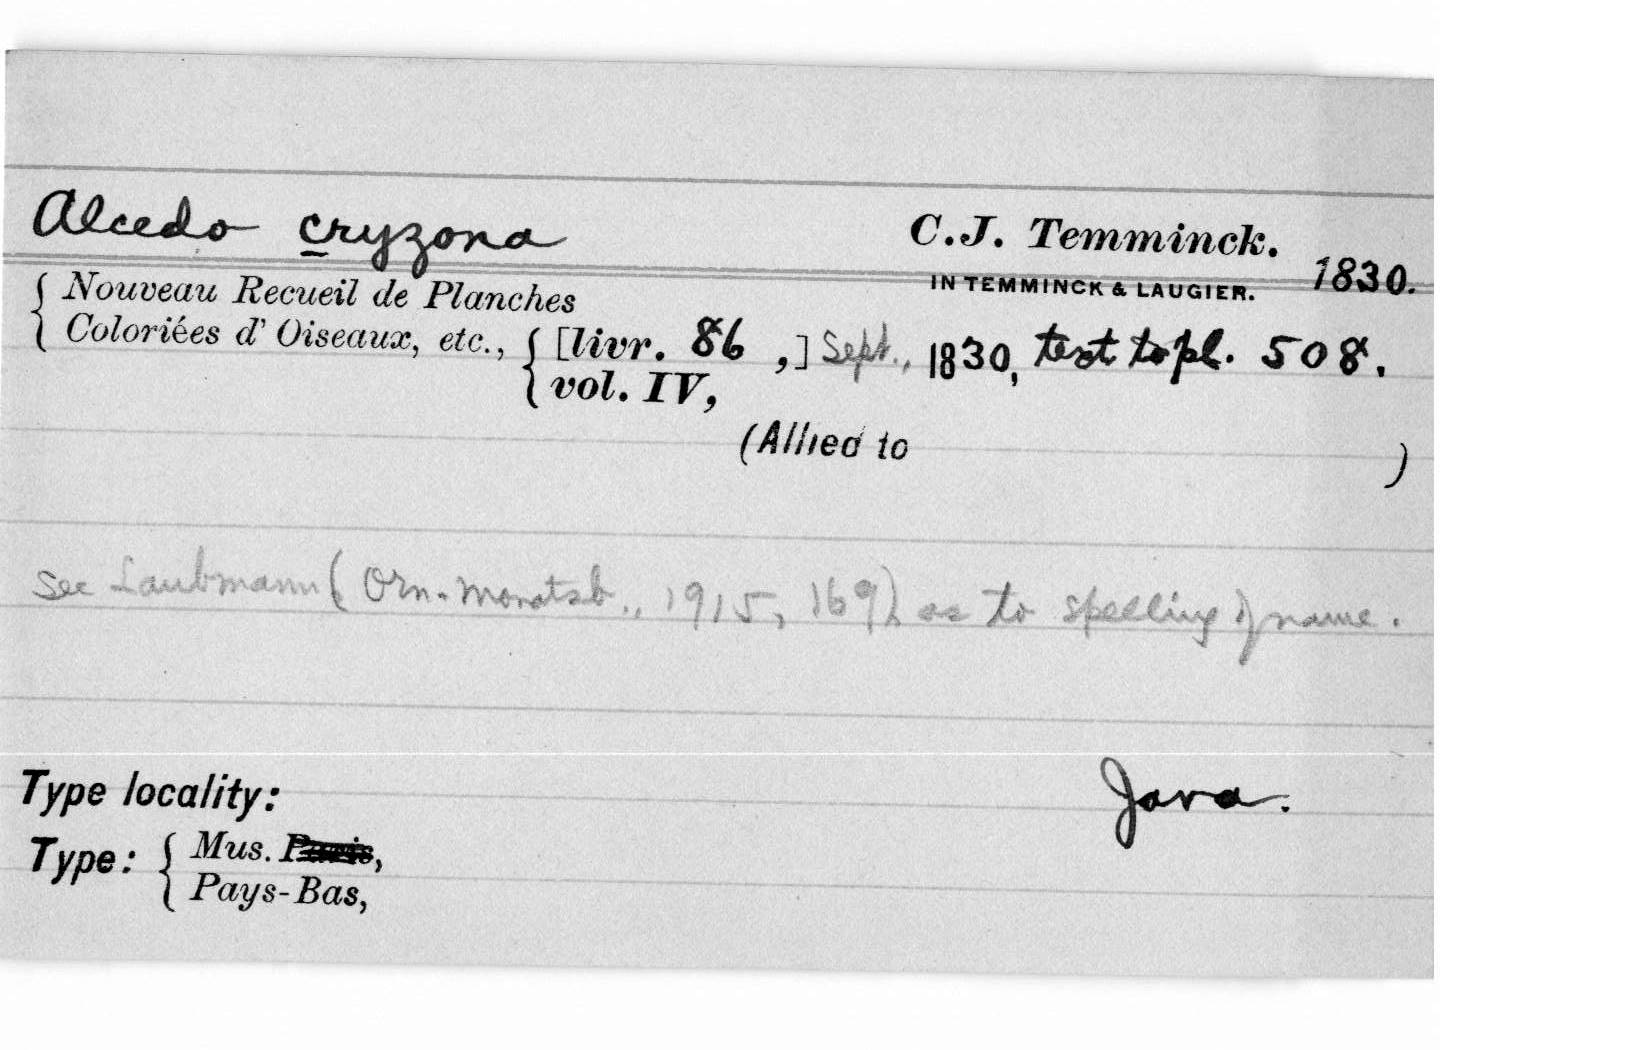 Alcedo cryzona C.J. Temminck.
IN TEMMINCK & LAUGIER. 1830.
Nouveau Recueil de Planches
Coloriées d' Oiseaux, etc., [livr. 86 ,] Sept., 1830, text to pl. 508.
vol. IV,
(Allied to )
See Laubmann (Orn. Monatsb., 1915, 169) as to spelling of name.
Type locality: Java.
Type: Mus. Paris,
Pays-Bas,